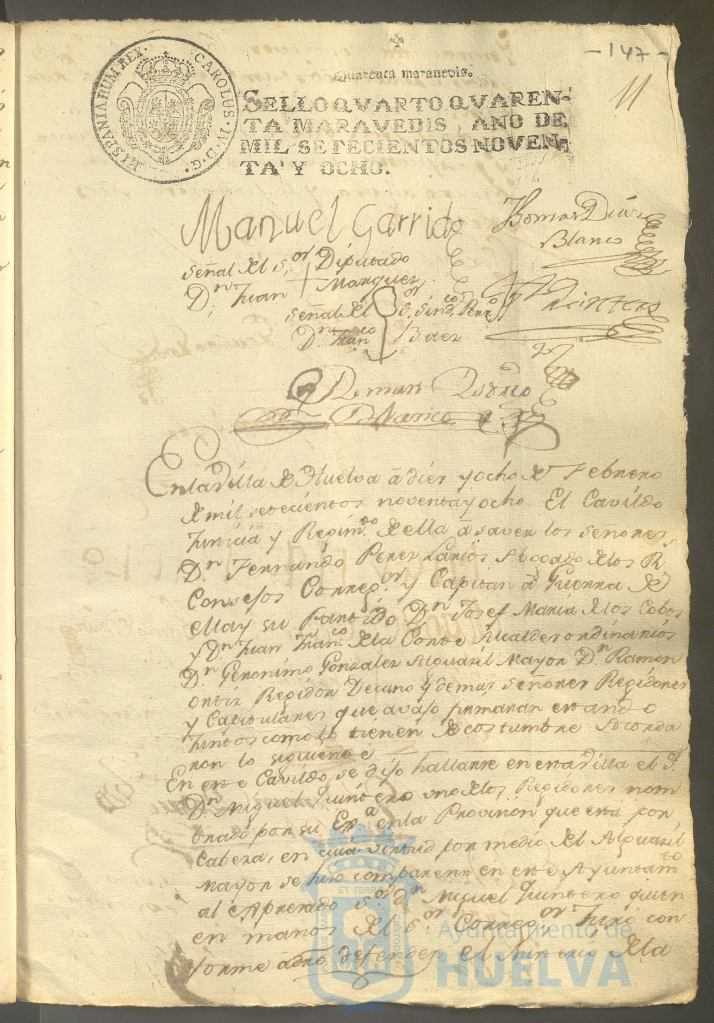 - 147 -
11
HISPANIARUM REX · CAROLUS · IV · D · G ·
Quarenta maravedis.
SELLO QVARTO, QVAREN-
TA MARAVEDIS, AÑO DE
MIL SETECIENTOS NOVEN-
TA Y OCHO.
Manuel Garrido
Thomas Diaz
Blanco
señal del s.or Diputado
D.n Juan + Marquez
señal del s.or sind.co
D.n Fran.co Baez
Quintero
Roman
En la Villa de Huelva a dies y ocho de Febrero
de mil setecientos noventa y ocho. El Cavildo
Justicia y Regim.to de ella a saver los señores
D.n Fernando Perez Larios Abogado de los R.
Consejos Correg.or y Capitan a Guerra de
ella y su Partido D.n Josef Maria de los Cobos
y D.n Juan Fran.co de la Corte Alcaldes ordinarios
D.n Geronimo Gonzalez Alguasil Mayor D.n Ramon
ortiz Regidor Decano y demas señores Regidores
y Capitulares que avajo firmaran estando
Juntos como lo tienen de costumbre Acorda
ron lo siguiente
En este Cavildo se dijo hallarse en esta Villa el S.or
D.n Miguel Quintero uno de los Regidores nom
brado por su Ex.a en la Provision que esta por
Cabeza, en cuia virtud por medio del Alguasil
Mayor se hiso comparecer en este Ayuntam.to
al expresado s.or D.n Miguel Quintero quien
en manos del s.or Correg.or Juro con
forme a dro defender el Misterio de la
Ayuntamiento de
HUELVA